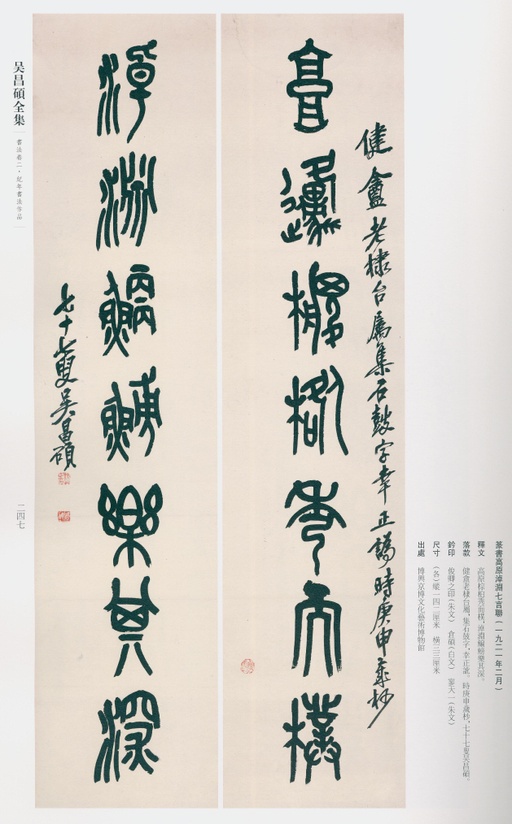 篆書高原淖淵七言聯(一九二一年二月)
釋文 高原棕柏秀而樸,淖淵鯿鯆樂其深。
落款 健盦老棣台屬,集石鼓字,幸正譌。時庚申歲杪,七十七叟吳昌碩。
鈐印 俊卿之印(朱文) 倉碩(白文) 寥天一(朱文)
尺寸 (各)縱一四二厘米 橫三三厘米
出處 博興京博文化藝術博物館
健盦老棣台屬集石鼓字幸正譌時庚申歲杪
高原棕柏秀而樸
淖淵鯿鯆樂其深
七十七叟吳昌碩
吴昌碩全集
書法卷二·紀年書法作品
二四七